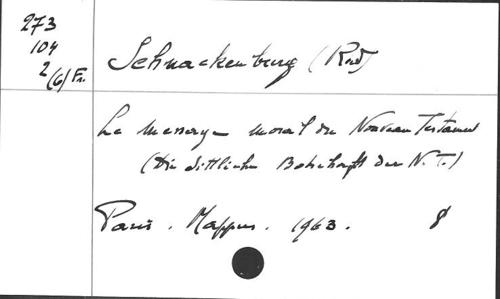 273
104
2 (6) Fr.
Schnackenburg (Rud)
Le Message moral du Nouveau Testament
(Die sittliche Botschaft des N.T.)
Paris. Mappus. 1963. 8